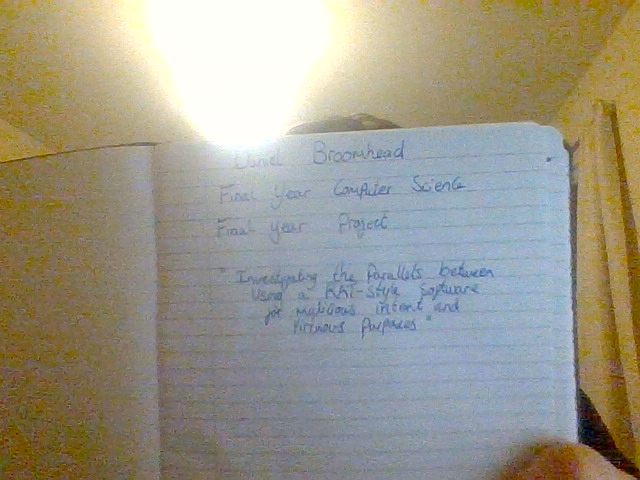 Daniel Broomhead
Final Year Computer Science
Final Year Project
"Investigating the Parallels between
Using a RAT-Style Software
for malicious intent and
Purposes"